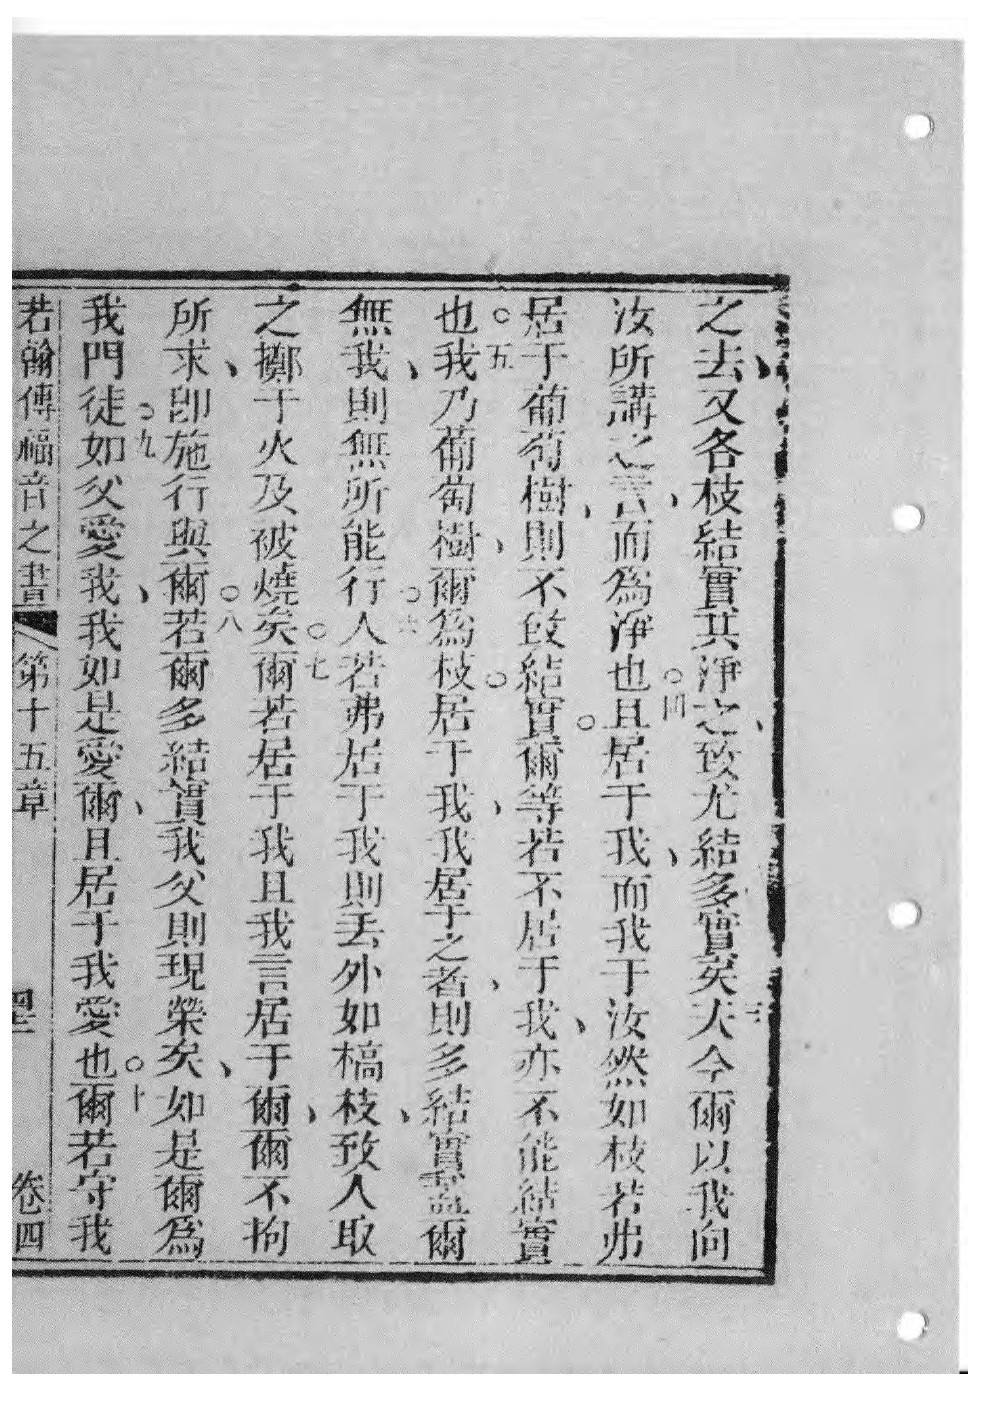 之去又各枝結實其淨之致尤結多實矣三夫今爾以我向
汝所講之言而為淨也○四且居于我而我于汝然如枝若弗
居于葡萄樹則不致結實○爾等若不居于我亦不能結實
也○五我乃葡萄樹爾為枝○居于我我居于之者則多結實蓋爾
無我則無所能行○六人若弗居于我則丟外如槁枝致人取
之擲于火及被燒矣○七爾若居于我且我言居于爾爾不拘
所求即施行與爾○八若爾多結實我父則現榮矣如是爾為
我門徒○九如父愛我我如是愛爾且居于我愛也○十爾若守我
若翰傳福音之書 第十五章 卷四